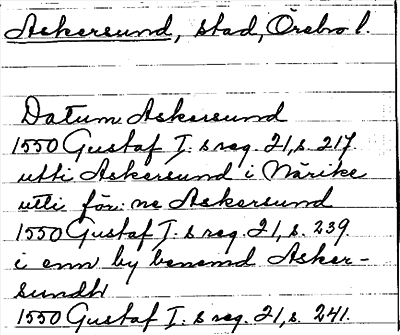 Askersund, stad, Örebro l.
Datum Askersund
1550 Gustaf I:s reg. 21, s. 217.
utti Askersund i Närike
utti för:ne Askersund
1550 Gustaf I:s reg. 21, s. 239.
i enn by benemd Asker-
sundh
1550 Gustaf I:s reg. 21, s. 241.